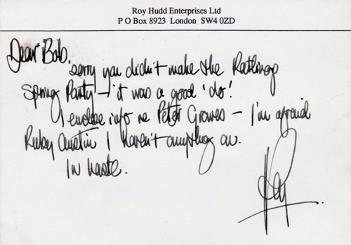 Roy Hudd Enterprises Ltd
P O Box 8923 London SW4 0ZD
Dear Bob,
sorry you didn't make the Ratlings
Spring Party – it was a good 'do'!
I enclose info re Peter Groves – I'm afraid
Ruby Austin I haven't anything on.
In haste.
Roy